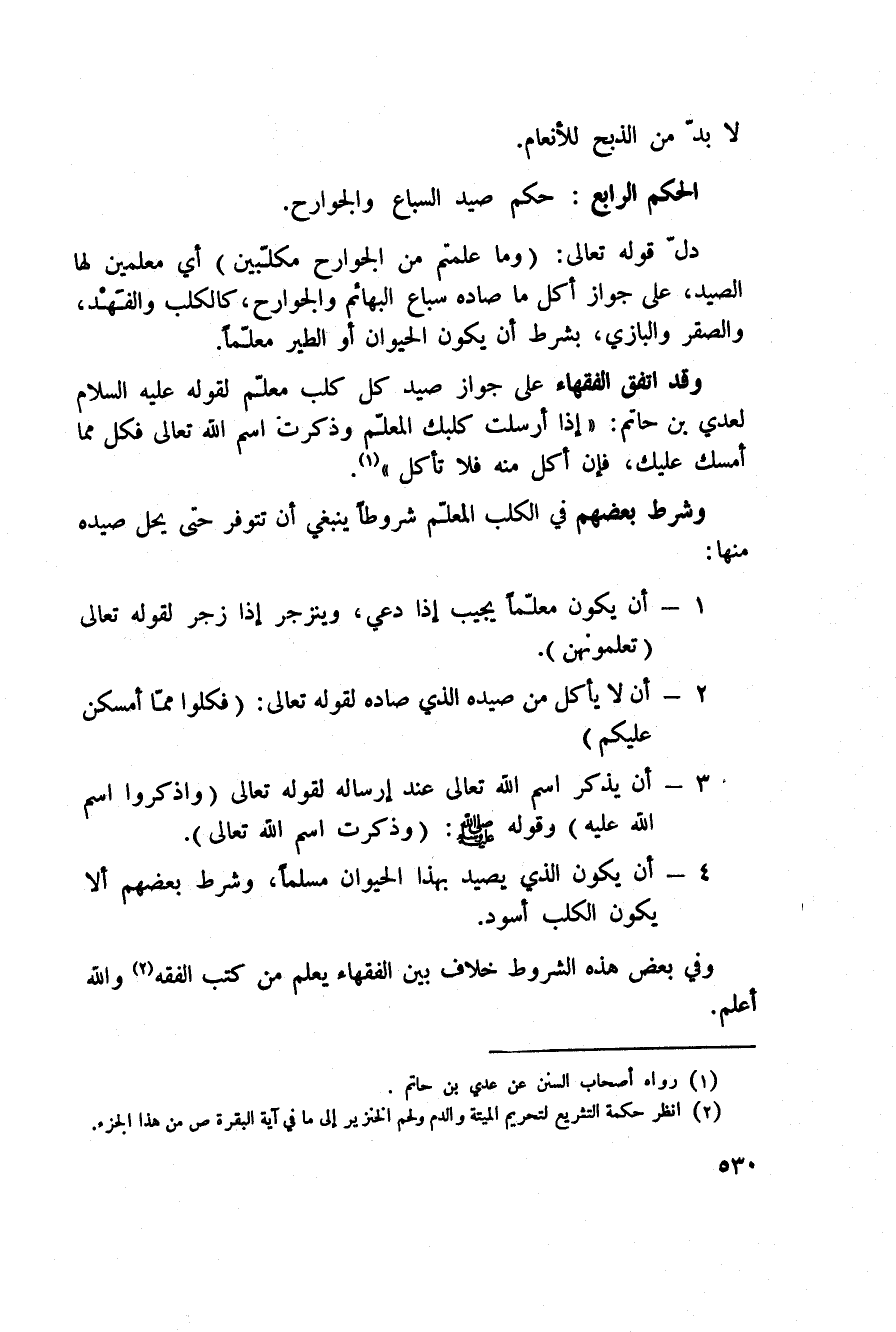 لا بدّ من الذبح للأنعام.
الحكم الرابع : حكم صيد السباع والجوارح.
دلّ قوله تعالى: ( وما علمتم من الجوارح مكلّبين ) أي معلمين لها
الصيد، على جواز أكل ما صاده سباع البهائم والجوارح، كالكلب والفَهْد،
والصقر والبازي، بشرط أن يكون الحيوان أو الطير معلّماً.
وقد اتفق الفقهاء على جواز صيد كل كلب معلّم لقوله عليه السلام
لعدي بن حاتم: « إذا أرسلت كلبك المعلّم وذكرت اسم الله تعالى فكل مما
أمسك عليك، فإن أكل منه فلا تأكل »(١).
وشرط بعضهم في الكلب المعلّم شروطاً ينبغي أن تتوفر حتى يحل صيده
منها:
١ – أن يكون معلّماً يجيب إذا دعي، وينزجر إذا زجر لقوله تعالى
( تعلمونهن ).
٢ – أن لا يأكل من صيده الذي صاده لقوله تعالى: ( فكلوا ممّا أمسكن
عليكم )
٣ – أن يذكر اسم الله تعالى عند إرساله لقوله تعالى ( واذكروا اسم
الله عليه ) وقوله ﷺ : ( وذكرت اسم الله تعالى ).
٤ – أن يكون الذي يصيد بهذا الحيوان مسلماً، وشرط بعضهم ألا
يكون الكلب أسود.
وفي بعض هذه الشروط خلاف بين الفقهاء يعلم من كتب الفقه(٢) والله
أعلم.
(١) رواه أصحاب السنن عن عدي بن حاتم .
(٢) انظر حكمة التشريع لتحريم الميتة والدم ولحم الخنزير إلى ما في آية البقرة ص من هذا الجزء.
٥٣٠